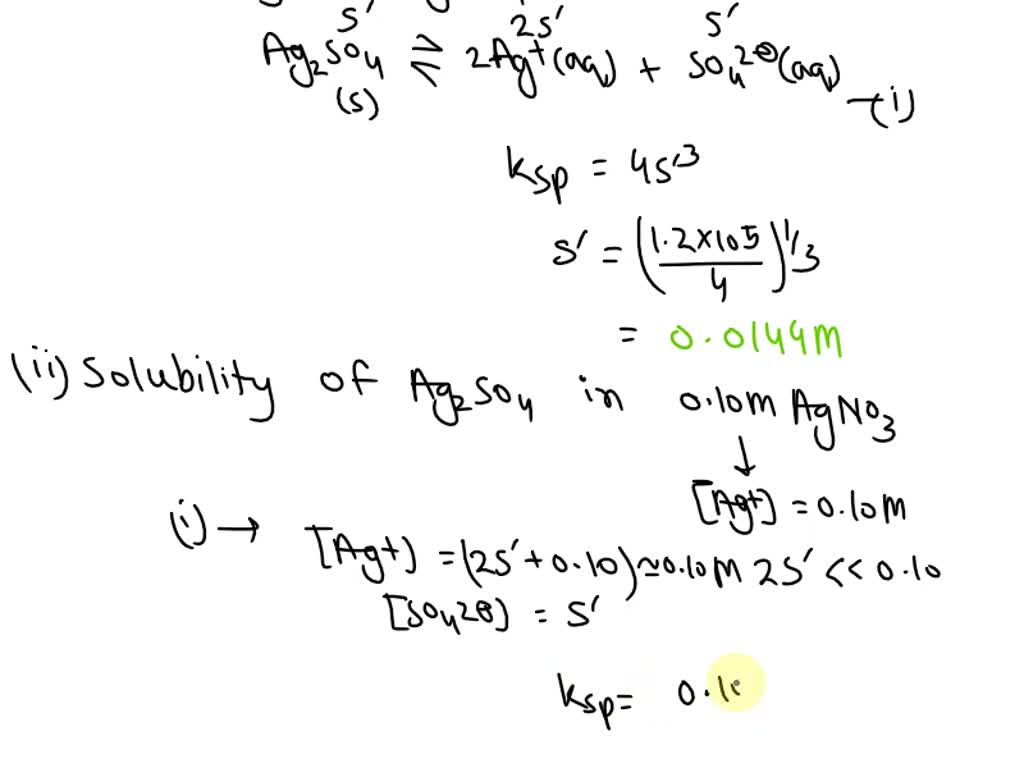 s' 2s' s'
Ag2SO4 ⇌ 2Ag+(aq) + SO4 2⊖(aq) —(i)
(s)
Ksp = 4s'3
s' = (1.2×105/4)1/3
= 0.0144M
(ii) Solubility of Ag2SO4 in 0.10M AgNO3
↓
[Ag+] = 0.10M
(i) → [Ag+] = (2s' + 0.10) ≃ 0.10M 2s' << 0.10
[SO4 2⊖] = s'
Ksp = 0.10